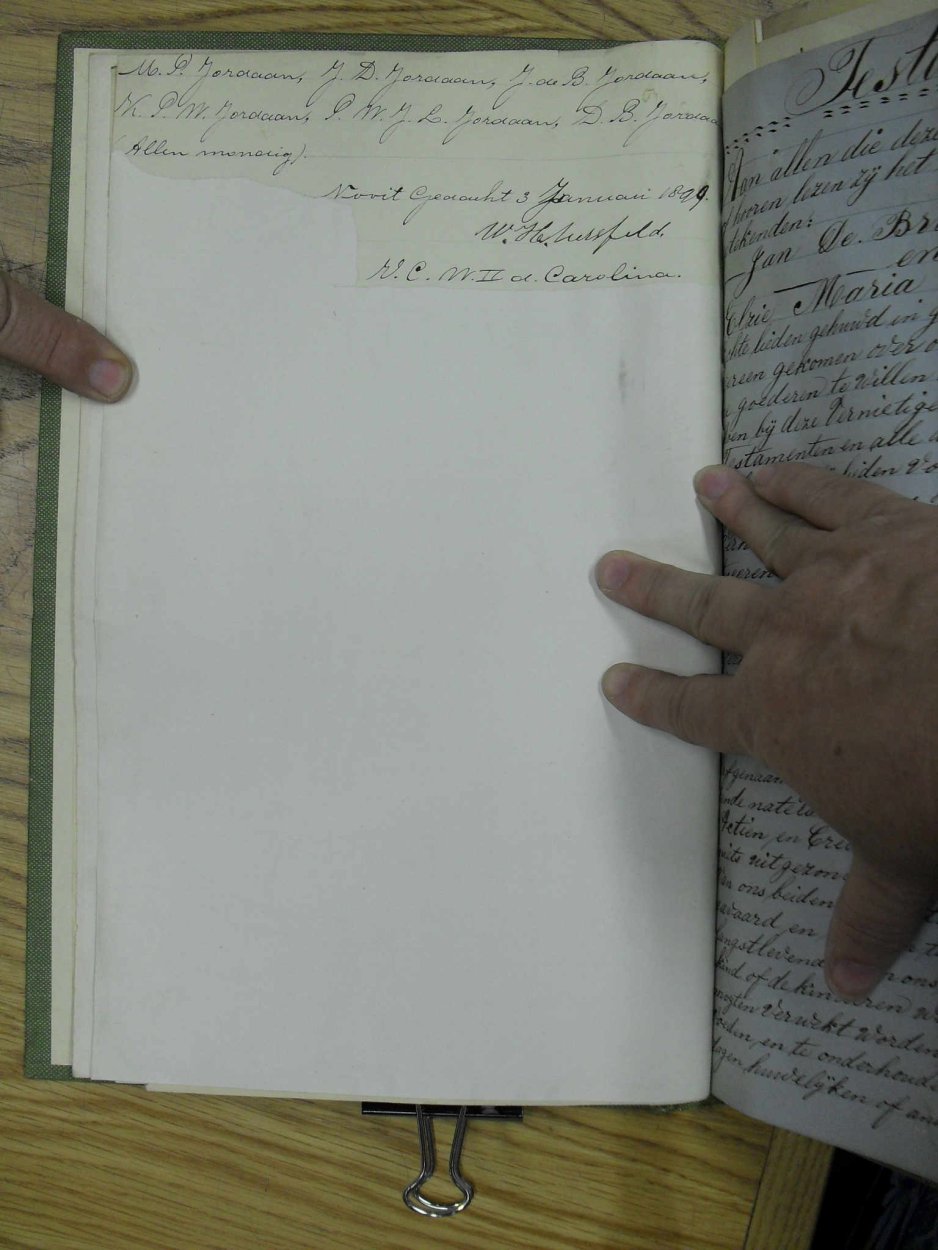 M. P. Jordaan, J. D. Jordaan, J. de B. Jordaan,
K. P. W. Jordaan, P. W. J. L. Jordaan, D. B. Jordaa
(Allen mondig).
Nooit Gedacht 3 Januari 1899.
W. H.
V. C. W. II d. Carolina.
Test
Aan allen die deze
hooren lezen zij het
tekenden:
Jan De. Br
en
Elzie Maria
chte lieden gehuwd in g
ersen gekomen over o
goederen te willen
en bij deze Vernietige
estamenten en alle a
beiden vo
eeren
fgenaam
nde nate
Actien en Cred
uits uitgezon
an ons beiden
aard en
langstlevend ons
kind of de kinderen w
mogten Verwekt Worden
oeden, en te onderhoude
dagen, huwelijken of and